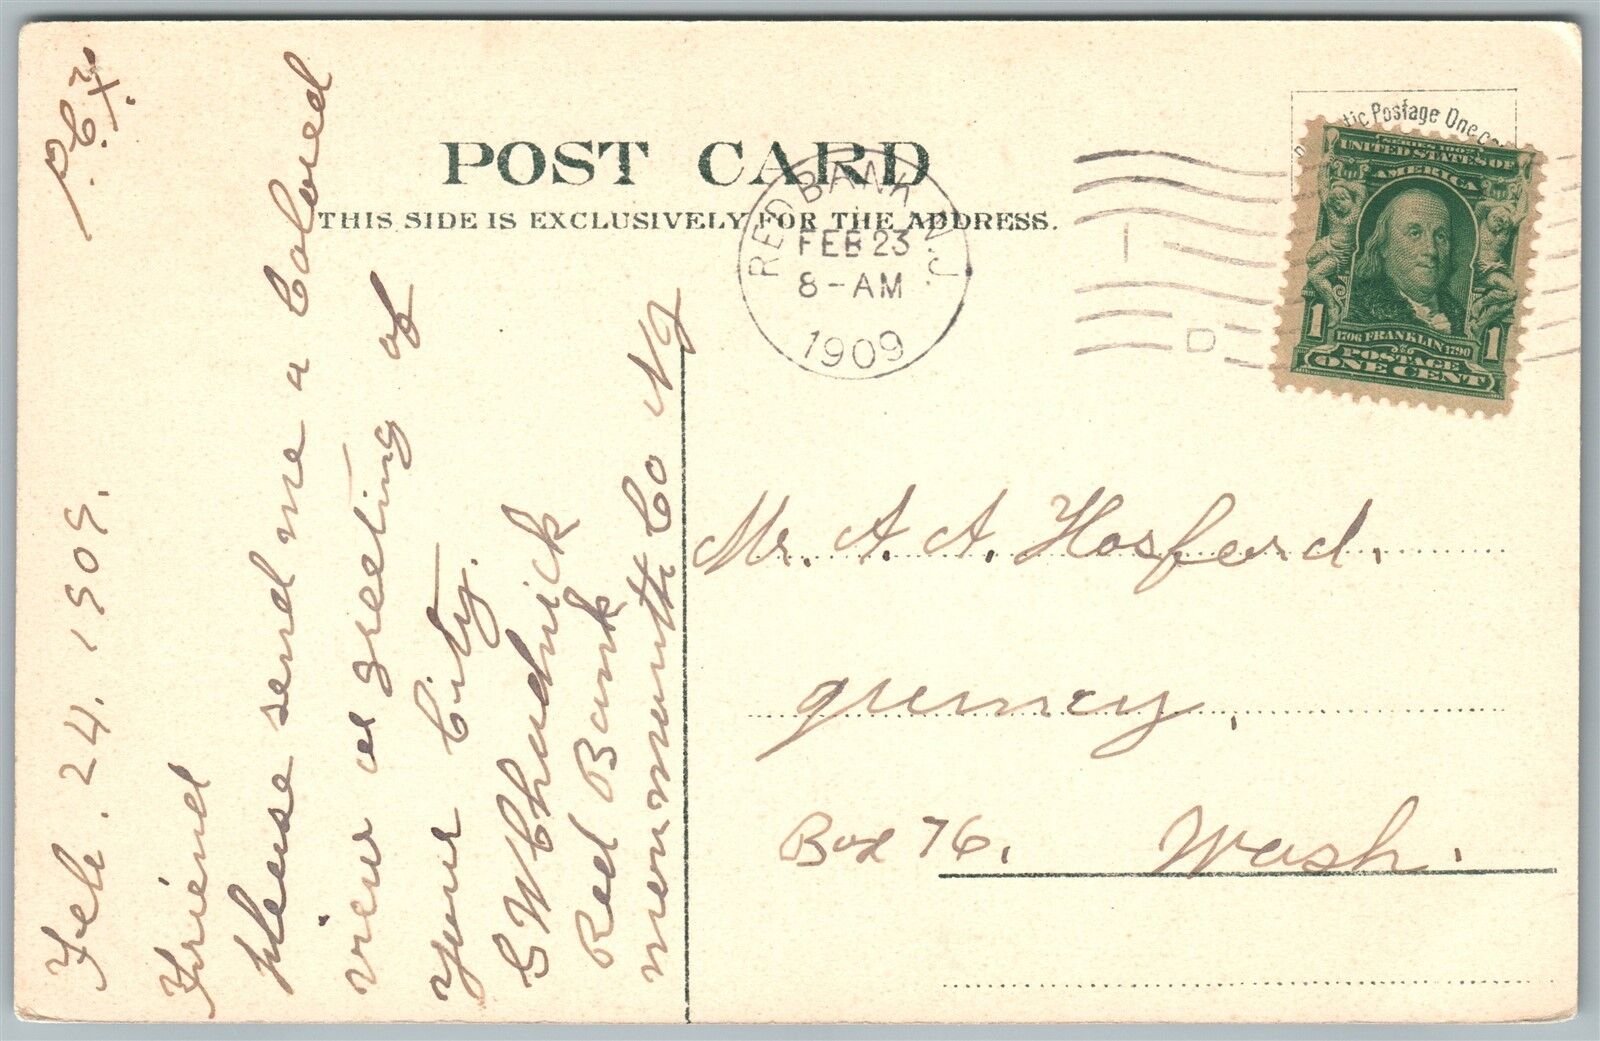 P.C.X.
Feb. 24. 1909.
Friend
please send me a Colored
view as greeting of
your City.
G W Chadwick
Red Bank
monmouth Co NJ
POST CARD
THIS SIDE IS EXCLUSIVELY FOR THE ADDRESS.
RED BANK N.J.
FEB 23
8-AM
1909
D
tic Postage One
SERIES 1902
UNITED STATES OF
AMERICA
1 1706 FRANKLIN 1790 1
POSTAGE
ONE CENT
Mr. A. A. Hosferd.
Box 76. Wash.